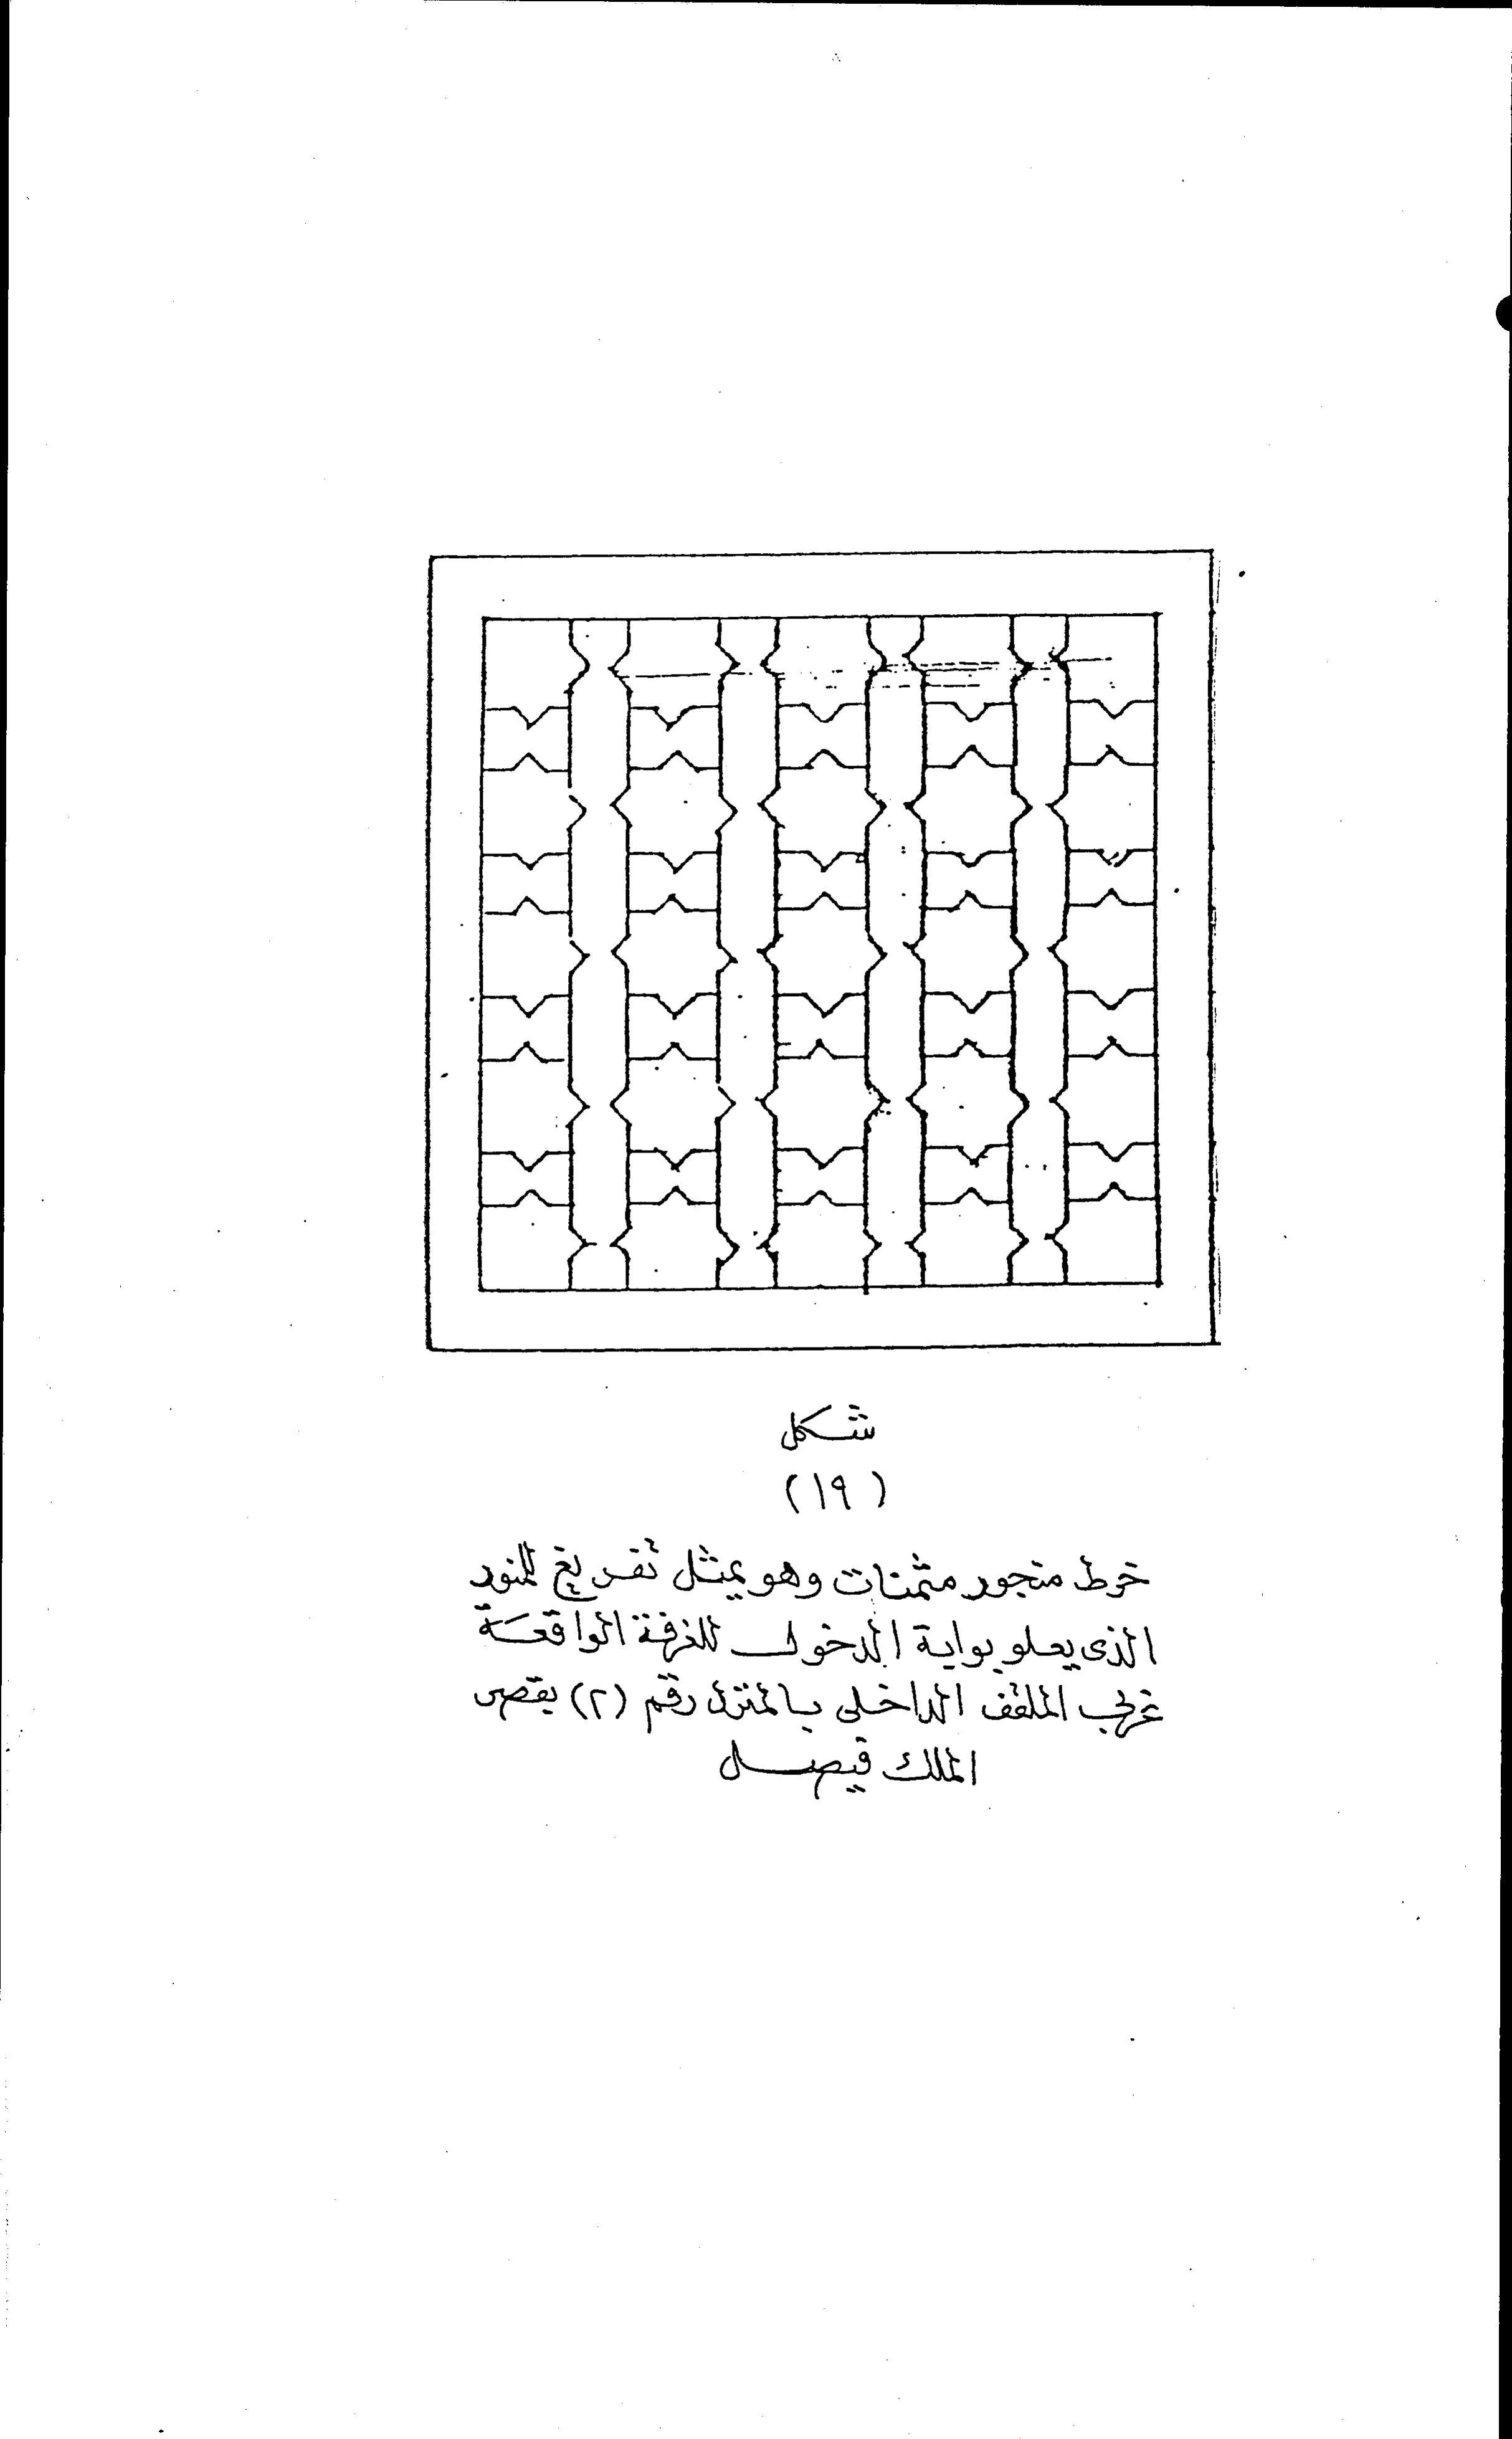 شكل
(١٩)
خرط منجور مثمنات وهو يمثل تفريغ للنور
الذى يعلو بوابة الدخول للغرفة الواقعة
غربى الملقف الداخلى بالمنزل رقم (٢) بقصر
الملك فيصل